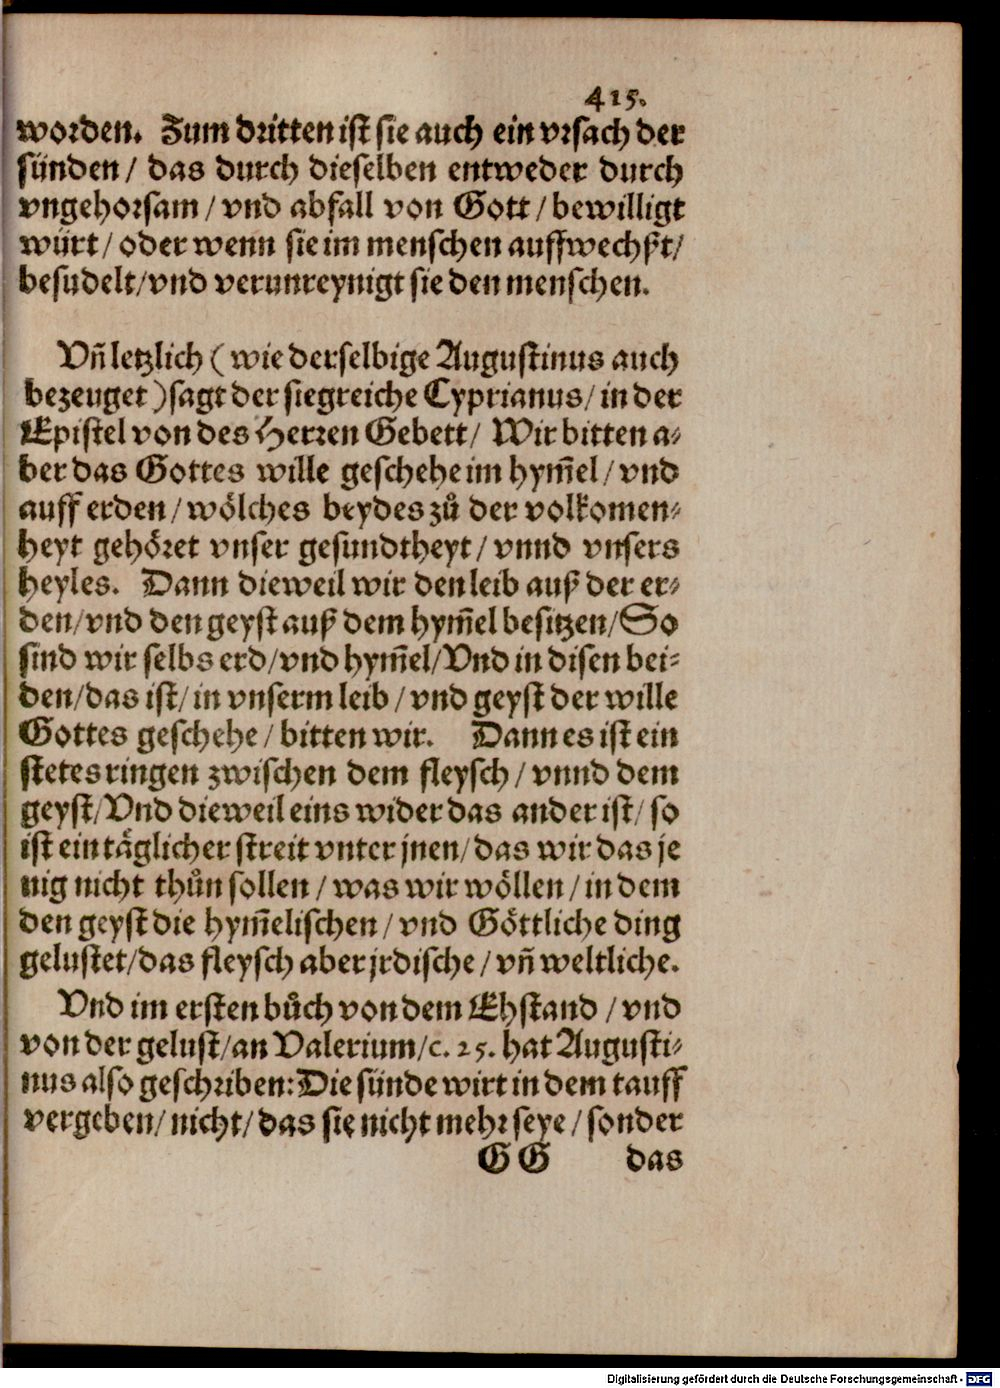 415.
worden. Zum dritten ist sie auch ein vrsach der
sünden / das durch dieselben entweder durch
vngehorsam / vnd abfall von Gott / bewilligt
würt / oder wenn sie im menschen auffwechßt /
besudelt / vnd verunreynigt sie den menschen.
Vñ letzlich ( wie derselbige Augustinus auch
bezeuget ) sagt der siegreiche Cyprianus / in der
Epistel von des Herren Gebett / Wir bitten a⸗
ber das Gottes wille geschehe im hym̃el / vnd
auff erden / wölches beydes zů der volkomen⸗
heyt gehöret vnser gesundtheyt / vnnd vnsers
heyles. Dann dieweil wir den leib auß der er⸗
den / vnd den geyst auß dem hym̃el besitzen / So
sind wir selbs erd / vnd hym̃el / Vnd in disen bei⸗
den / das ist / in vnserm leib / vnd geyst der wille
Gottes geschehe / bitten wir. Dann es ist ein
stetes ringen zwischen dem fleysch / vnnd dem
geyst / Vnd dieweil eins wider das ander ist / so
ist ein täglicher streit vnter jnen / das wir das je
nig nicht thůn sollen / was wir wöllen / in dem
den geyst die hym̃elischen / vnd Göttliche ding
gelustet / das fleysch aber jrdische / vñ weltliche.
Vnd im ersten bůch von dem Ehstand / vnd
von der gelust / an Valerium / c. 25. hat Augusti⸗
nus also geschriben: Die sünde wirt in dem tauff
vergeben / nicht / das sie nicht mehr seye / sonder
GG das
Digitalisierung gefördert durch die Deutsche Forschungsgemeinschaft - DFG